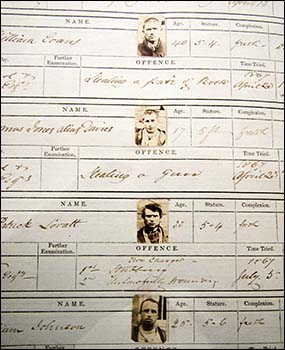 NAME. Age. Stature. Complexion.
William Evans 40 5-4 fresh
Further Examination. OFFENCE. Time Tried.
Stealing a pair of Boots 1867 April 23
NAME. Age. Stature. Complexion.
Jones alias Davies 17 fresh
Further Examination. OFFENCE. Time Tried.
Stealing a Gun 1867 April 23
NAME. Age. Stature. Complexion.
Patrick Lovatt 22 5-4 fresh
Further Examination. OFFENCE. Time Tried.
Two Charges 1867
1st Stabbing July 5
2nd Unlawfully Wounding
NAME. Age. Stature. Complexion.
Johnson 25 5-6 fresh
OFFENCE.